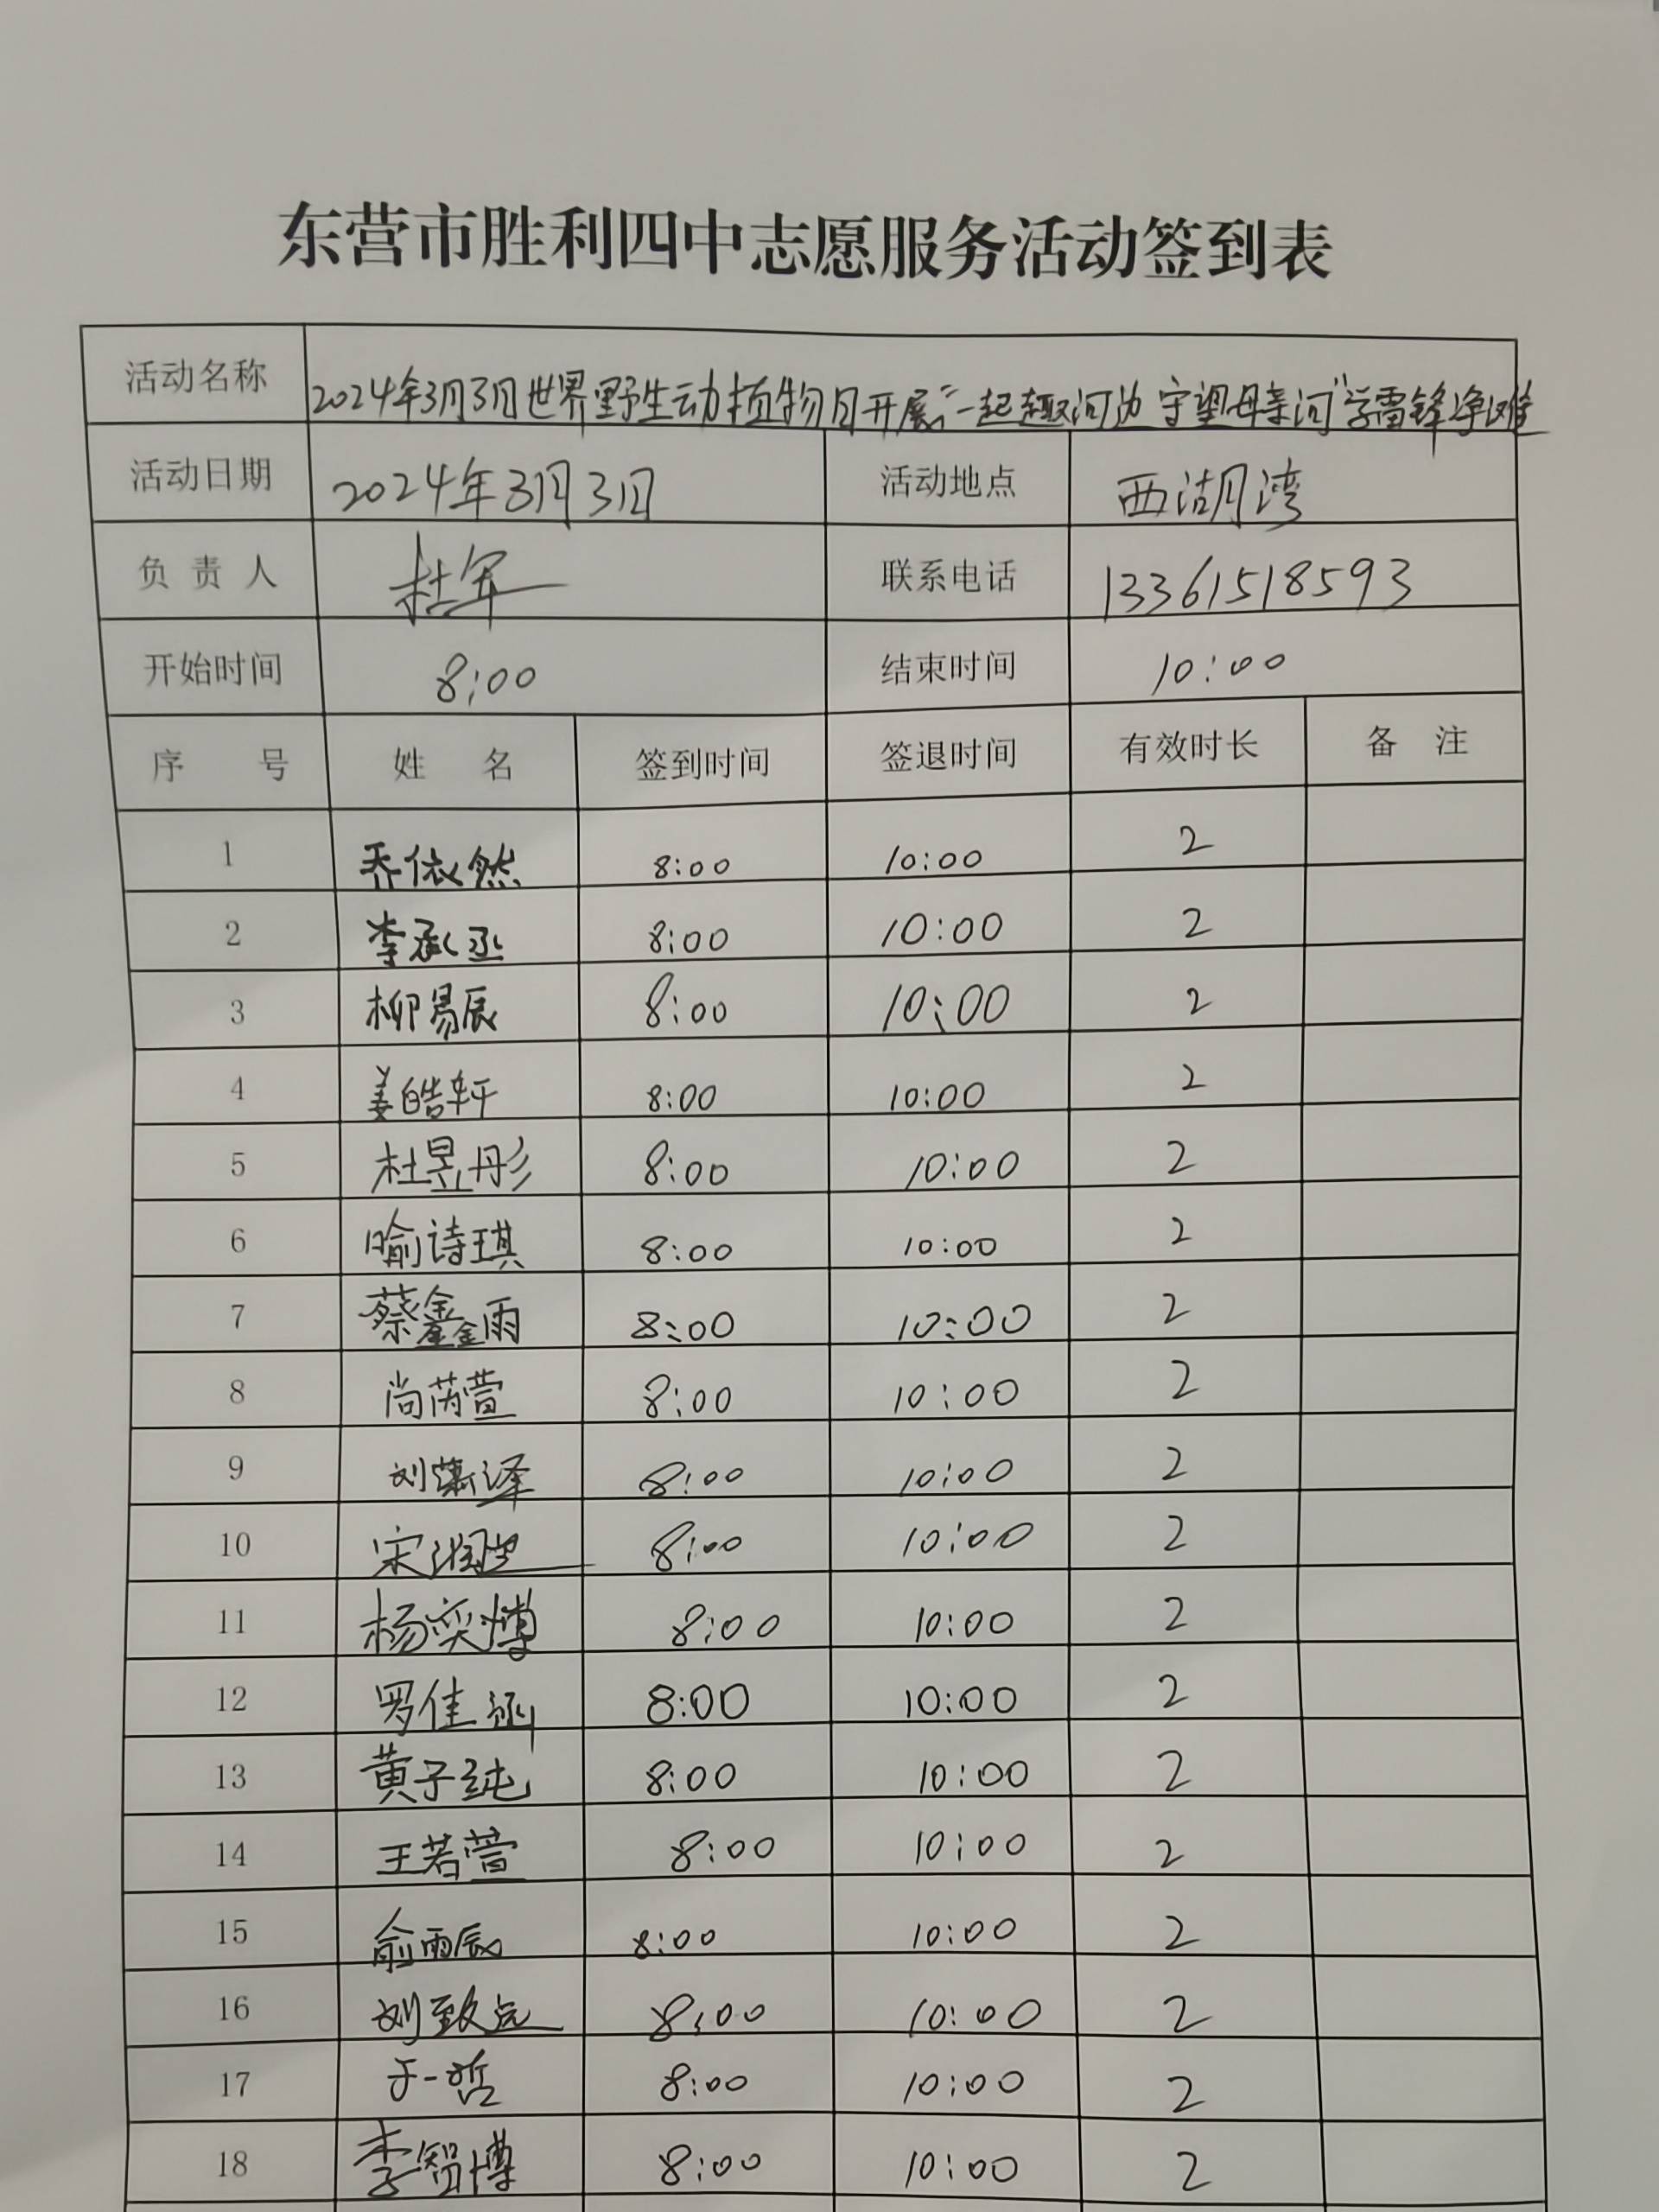 东营市胜利四中志愿服务活动签到表
活动名称 2024年3月3日世界野生动植物日开展“一起趣河边 守望母亲河”学雷锋净滩
活动日期 2024年3月3日 活动地点 西湖月湾
负责人 杜军 联系电话 13361518593
开始时间 8:00 结束时间 10:00
序号 姓名 签到时间 签退时间 有效时长 备注
1 乔依然 8:00 10:00 2
2 李承丞 8:00 10:00 2
3 柳易辰 8:00 10:00 2
4 姜皓轩 8:00 10:00 2
5 杜昱彤 8:00 10:00 2
6 喻诗琪 8:00 10:00 2
7 蔡鑫雨 8:00 10:00 2
8 尚芮萱 8:00 10:00 2
9 刘 泽 8:00 10:00 2
10 宋 8:00 10:00 2
11 杨奕博 8:00 10:00 2
12 罗佳涵 8:00 10:00 2
13 黄子纯 8:00 10:00 2
14 王若萱 8:00 10:00 2
15 俞雨辰 8:00 10:00 2
16 刘致远 8:00 10:00 2
17 于一哲 8:00 10:00 2
18 李智博 8:00 10:00 2